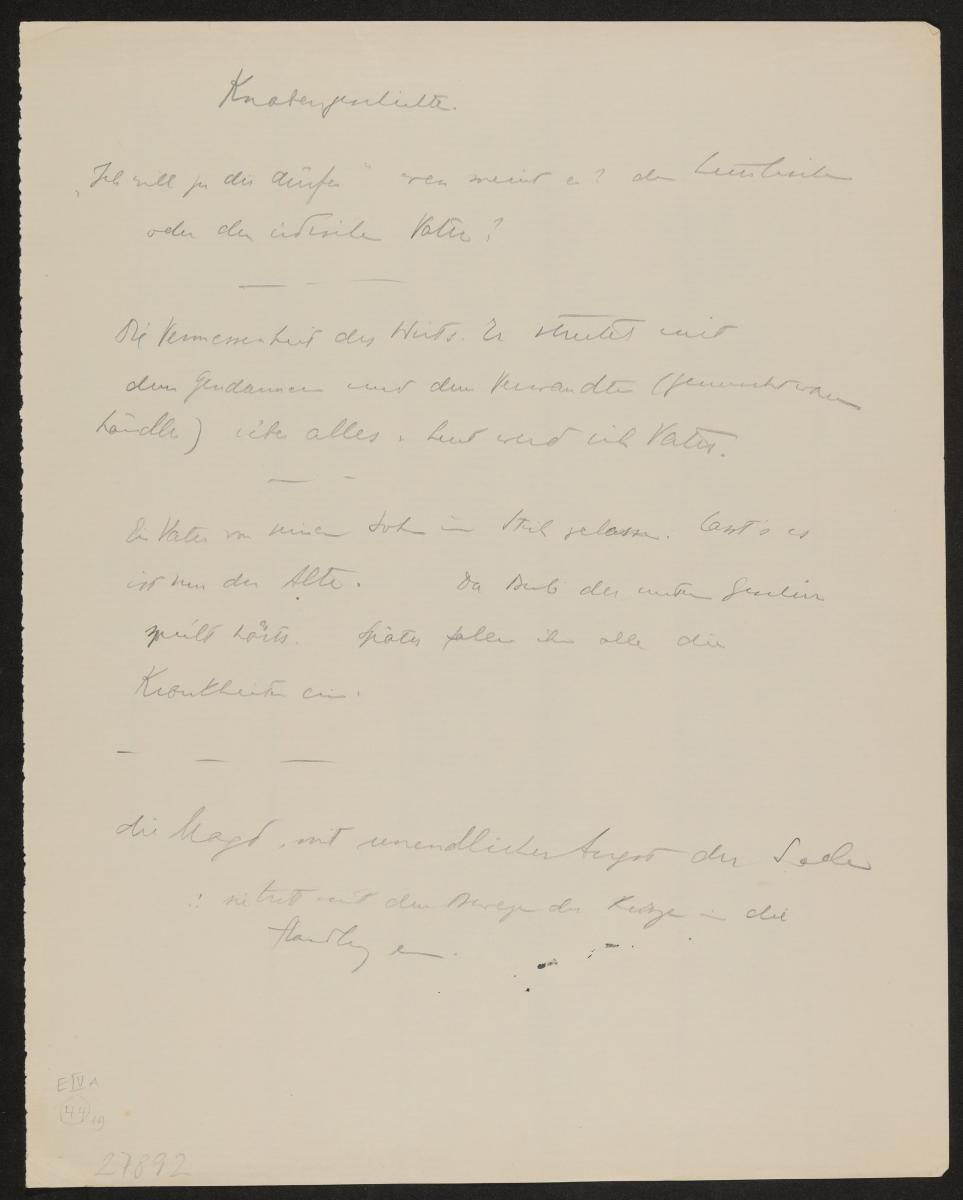 Knabengeschichte.
„Ich will zu dir dürfen" wen meint er? den himmlischen
oder den irdischen Vater?
Die Vermessenheit des Wirts. Er streitet mit
dem Gendarmen und dem Verwandten (Gemischtwaren
händler) über alles. heut werd ich Vater.
Ein Vater von seinem Sohn im Stich gelassen. Lasst's es
ist nur der Alte. Da der unten
hört's. Später fallen ihm alle die
Krankheiten ein.
die Magd, mit unendlicher Angst der Seele
: sie tritt mit dem der Kerze in die
Handlung ein.
E IV A
44 19
27892